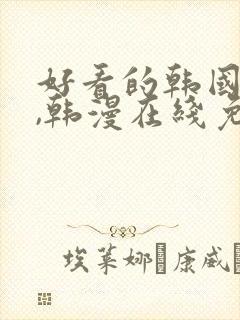 好看的韩国
,韩漫在线免
埃莱娜·康威·